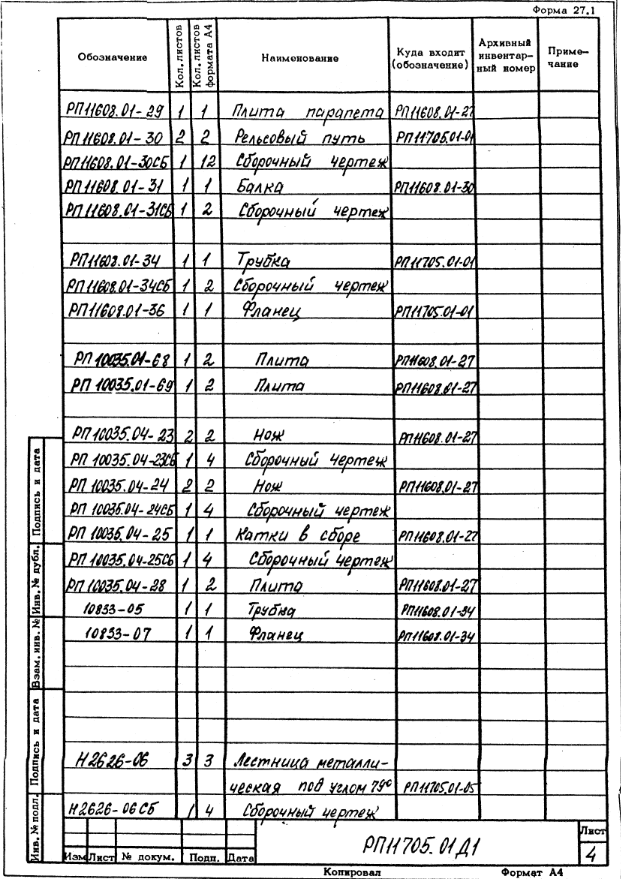 Форма 27.1
Обозначение Кол. листов Кол. листов формата А4 Наименование Куда входит (обозначение) Архивный инвентар-ный номер Приме-чание
РП11608.01-29 1 1 Плита парапета РП11608.01-27
РП11608.01-30 2 2 Рельсовый путь РП11705.01-01
РП11608.01-30СБ 1 12 Сборочный чертеж
РП11608.01-31 1 1 Балка РП11608.01-30
РП11608.01-31СБ 1 2 Сборочный чертеж
РП11608.01-34 1 1 Трубка РП11705.01-01
РП11608.01-34СБ 1 2 Сборочный чертеж
РП11608.01-36 1 1 Фланец РП11705.01-01
РП10035.01-68 1 2 Плита РП11608.01-27
РП 10035.01-69 1 2 Плита РП11608.01-27
РП 10035.04-23 2 2 Нож РП11608.01-27
РП 10035.04-23СБ 1 4 Сборочный чертеж
РП 10035.04-24 2 2 Нож РП11608.01-27
РП 10035.04-24СБ 1 4 Сборочный чертеж
РП 10035.04-25 1 1 Катки в сборе РП11608.01-27
РП 10035.04-25СБ 1 4 Сборочный чертеж
РП 10035.04-28 1 2 Плита РП11608.01-27
10853-05 1 1 Трубка РП11608.01-34
10853-07 1 1 Фланец РП11608.01-34
Н2626-06 3 3 Лестница металли-
ческая под углом 79° РП11705.01-05
Н2626-06СБ 1 4 Сборочный чертеж
Инв. № подл. Подпись и дата Взам. инв. № Инв. № дубл. Подпись и дата
РП11705.01Д1
Лист
4
Изм Лист № докум. Подп. Дата
Копировал Формат А4